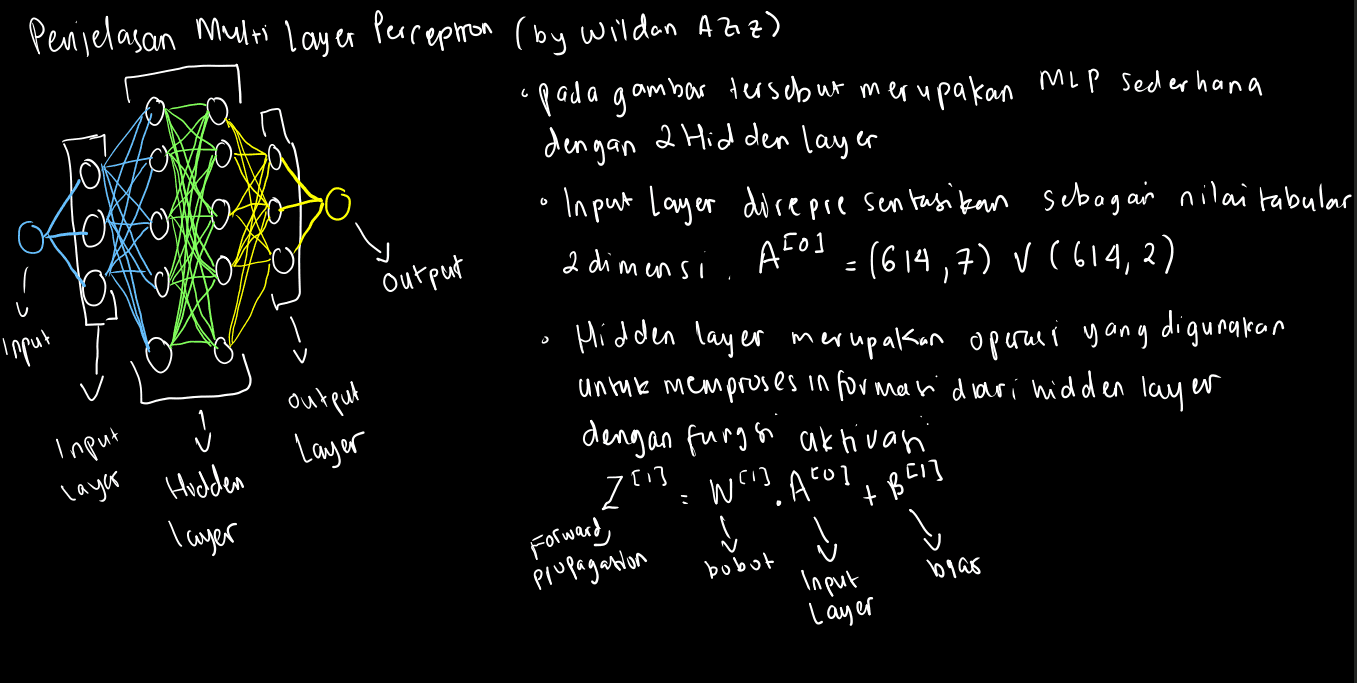 Penjelasan Multi Layer Perceptron (by Wildan Aziz)
Input
Input
Layer
Hidden
layer
Output
Layer
Output
• pada gambar tersebut merupakan MLP sederhana
dengan 2 Hidden Layer
• Input Layer direpresentasikan sebagai nilai tabular
2 dimensi. A^[0] = (614, 7) V (614, 2)
• Hidden layer merupakan operasi yang digunakan
untuk memproses informasi dari hidden layer
dengan fungsi aktivasi
Z^[1] = W^[1] . A^[0] + B^[1]
Forward
propagation
bobot
Input
Layer
bias